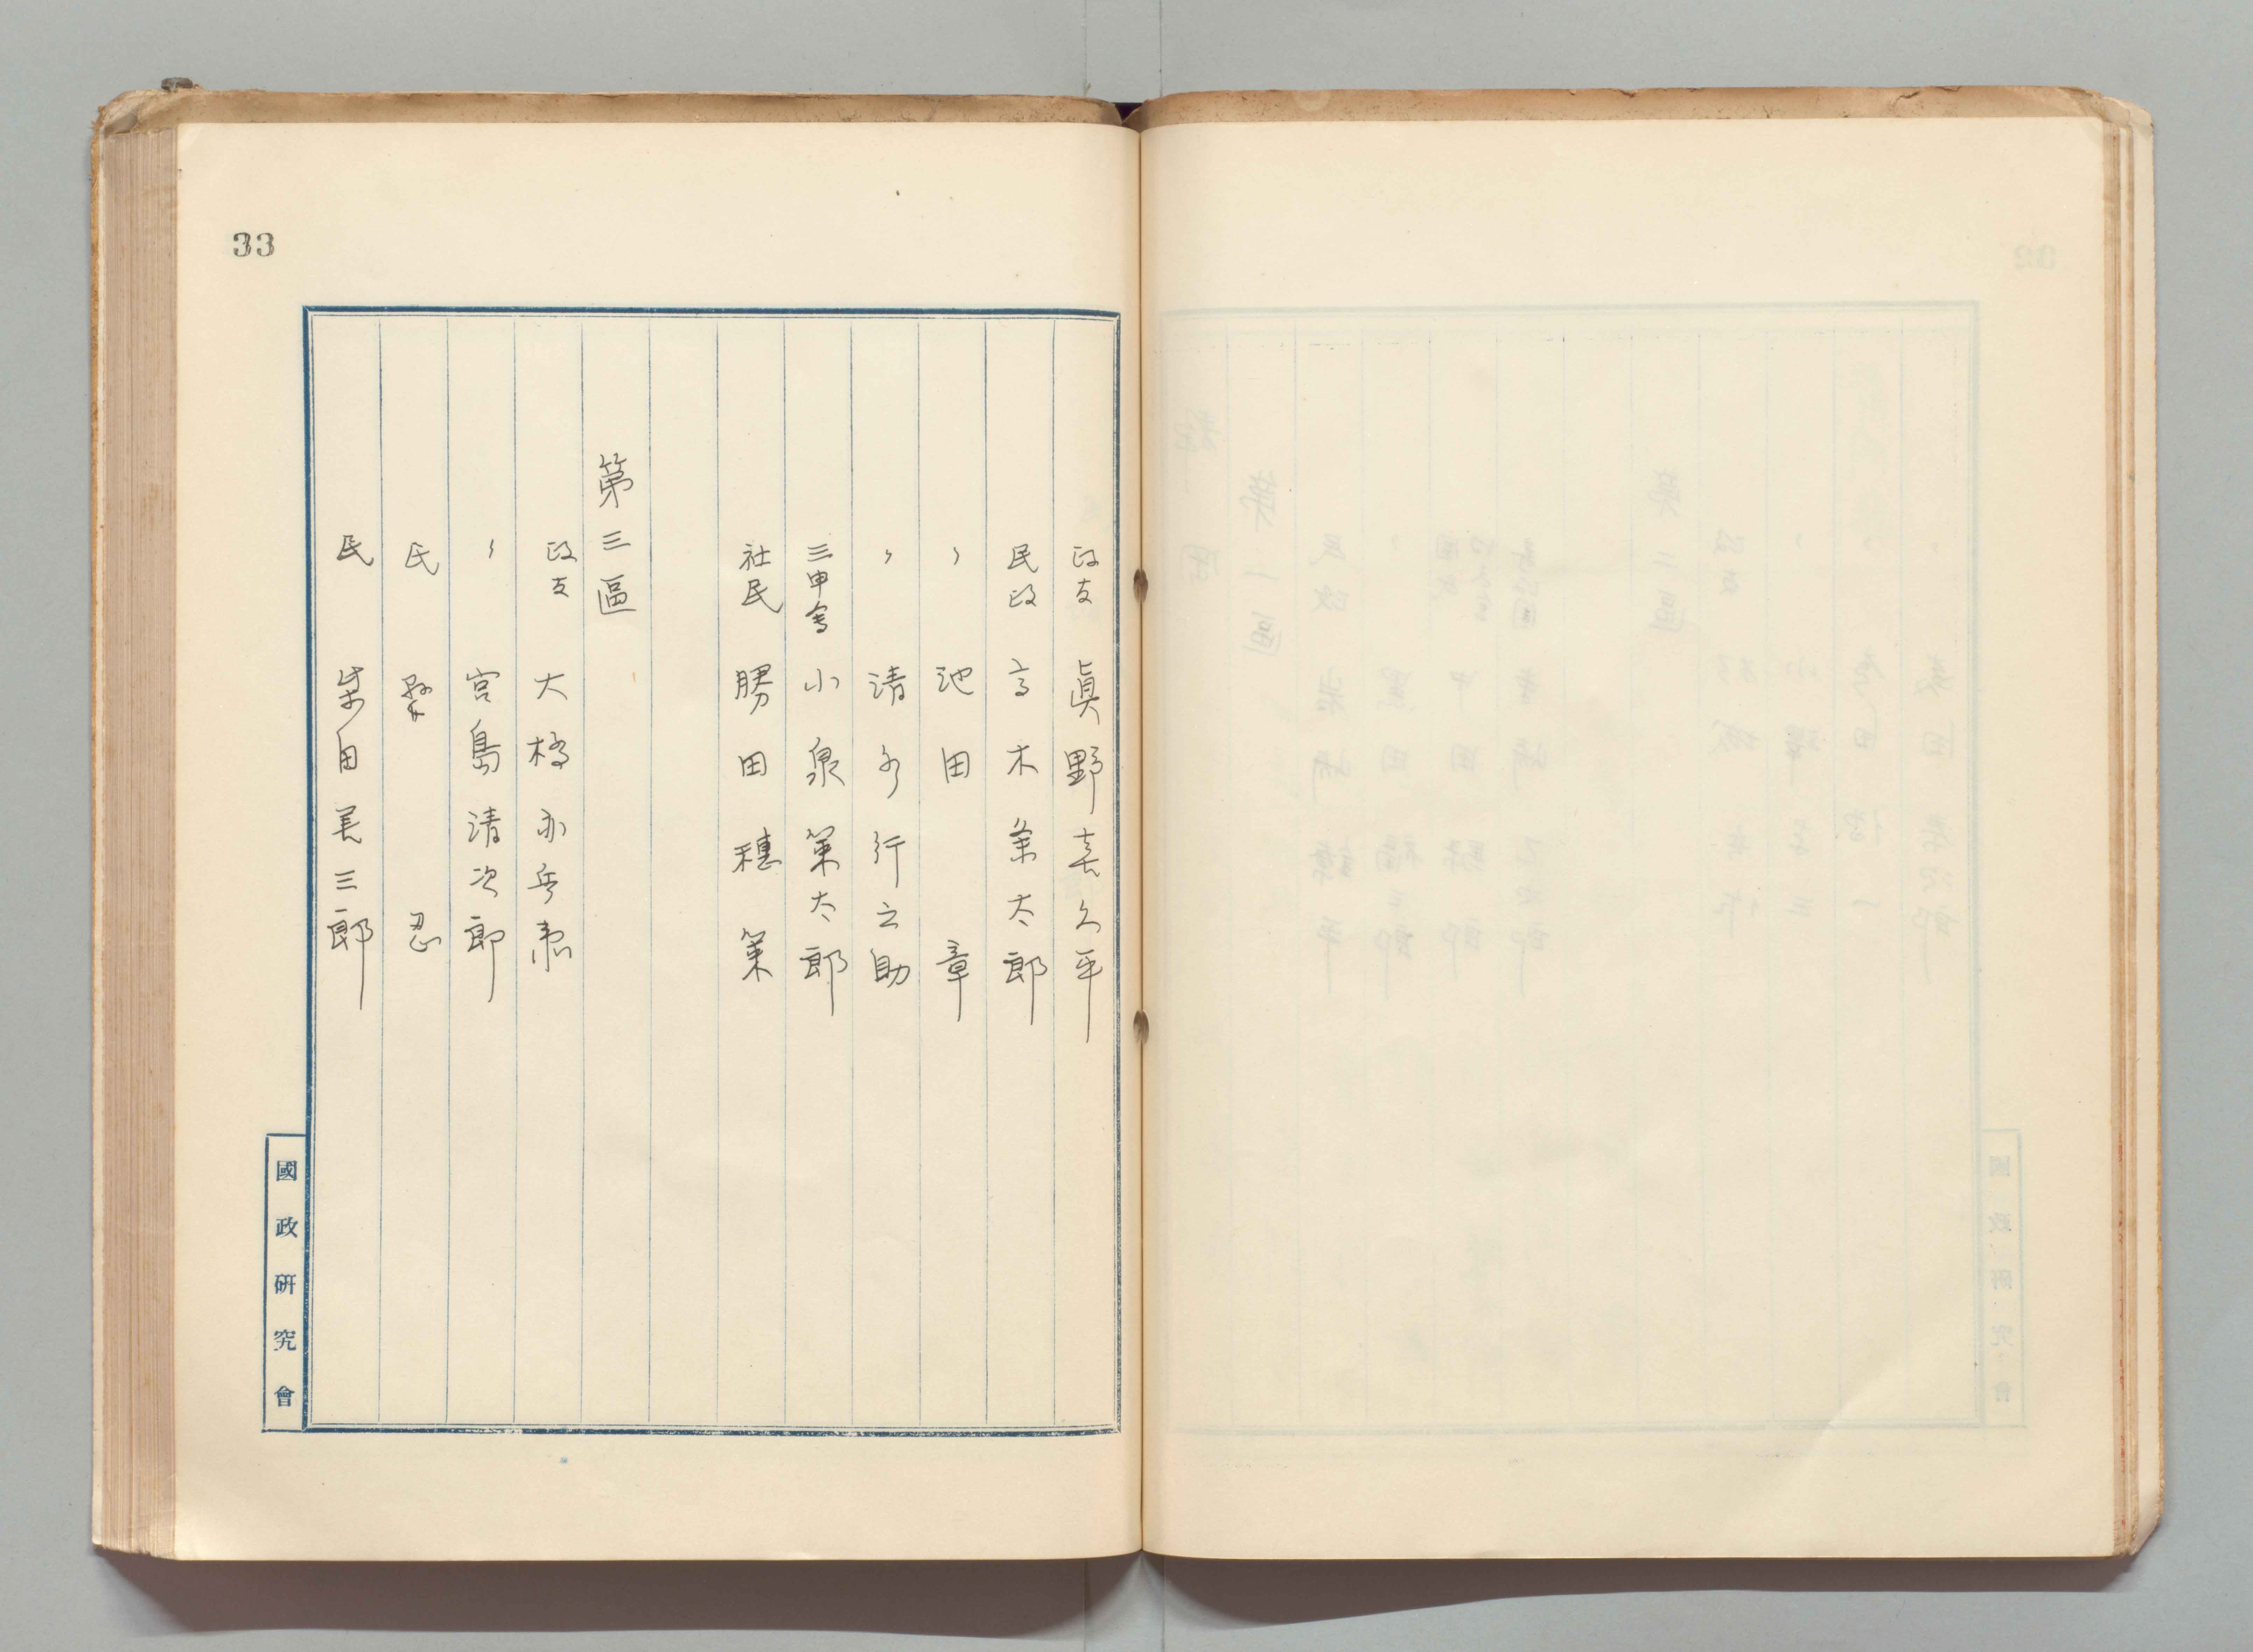 33
政友 眞野喜久平
民政 高木条太郎
〃 池田 章
〃 清水行之助
三申會 小泉策太郎
社民 勝田穗策
第三區
政友 大橋亦兵衛
〃 宮島清次郎
民 忍
民 柴田美三郎
國政研究會